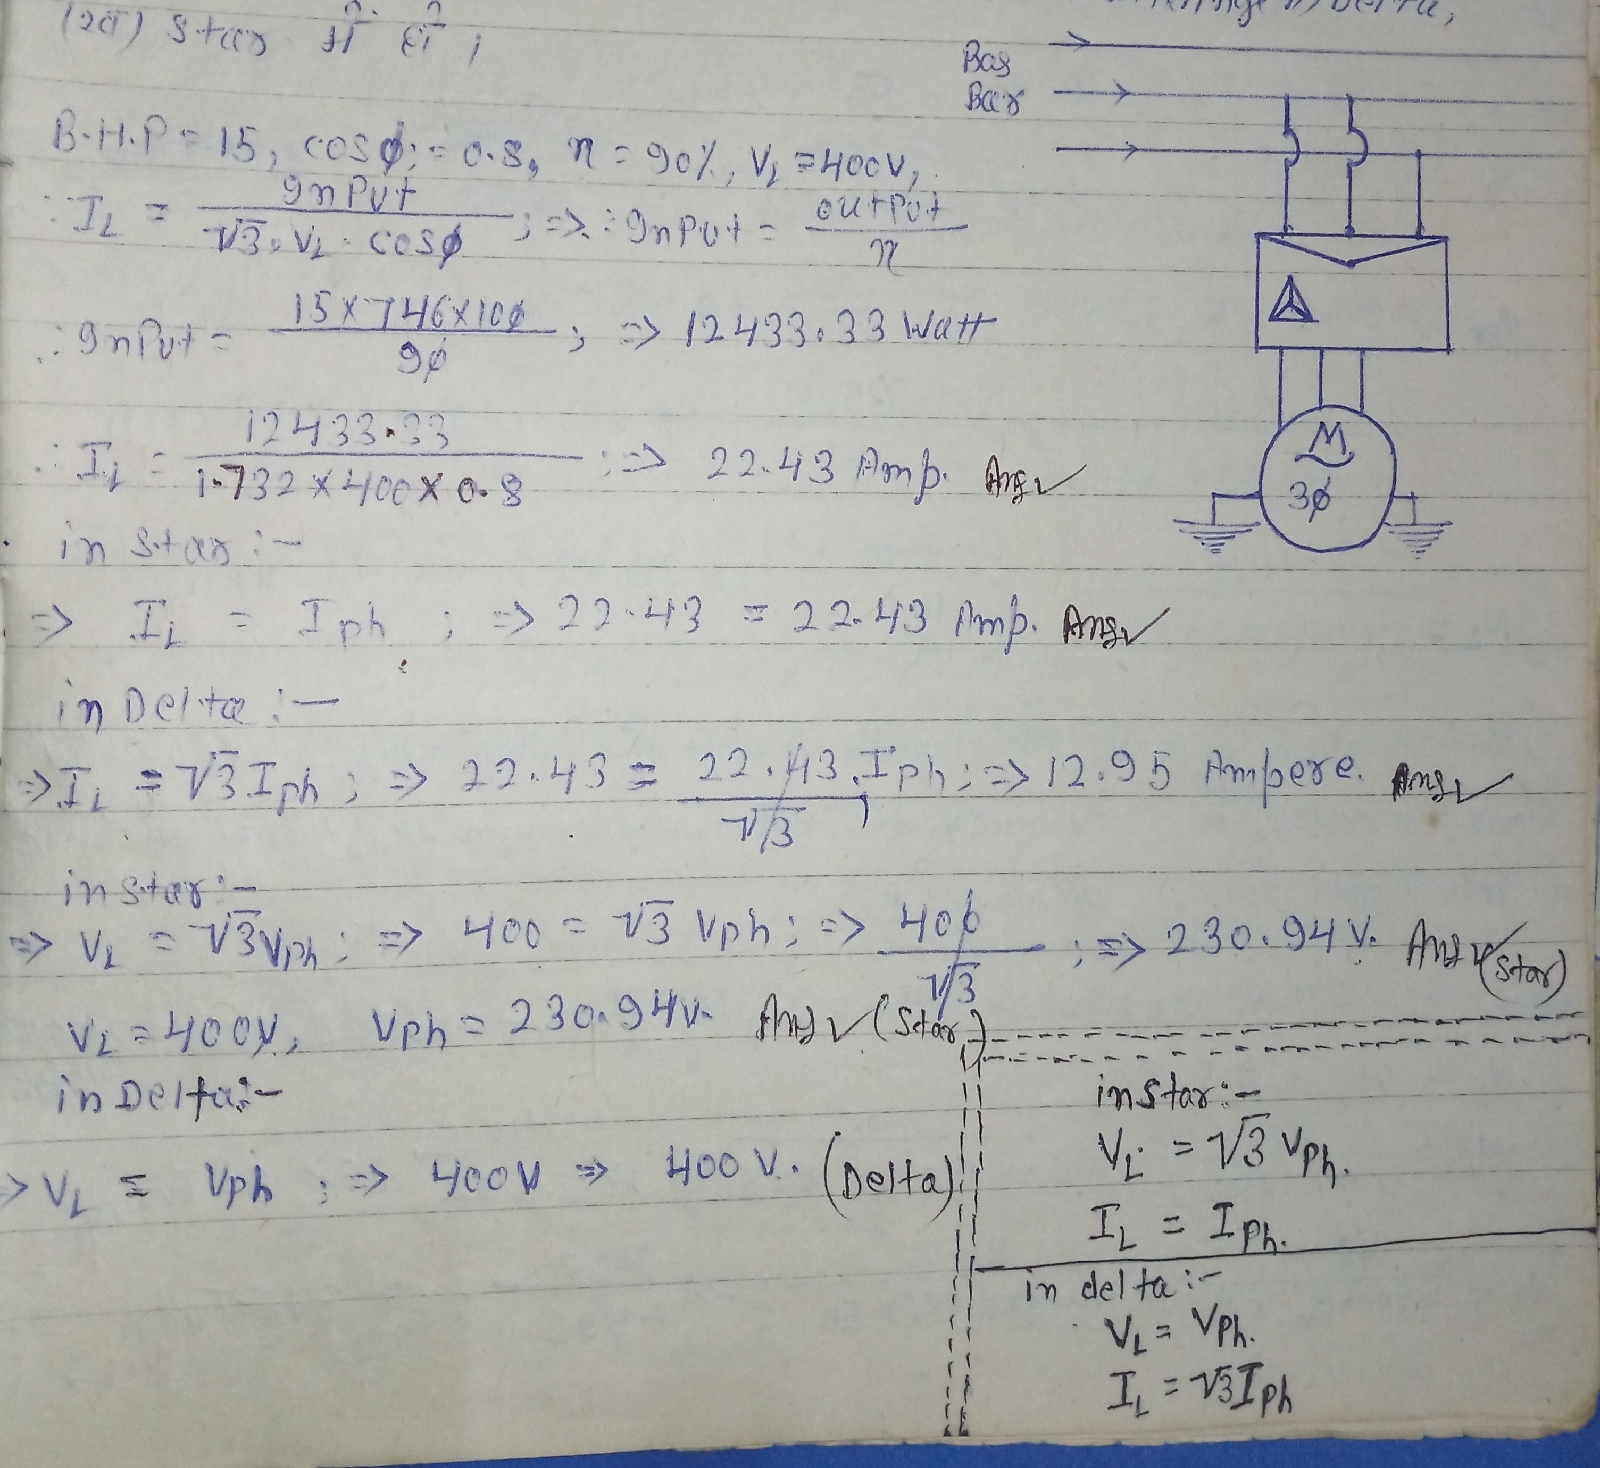 (2a) star में है ;
Bas
Bar
B.H.P = 15, cosϕ; = 0.8, η = 90%, V_L = 400V,
∴ I_L = InPut / √3. V_L. cosϕ ; ⇒ ∴ InPut = outPut / η
∴ InPut = 15×746×100 / 90 ; ⇒ 12433.33 Watt
∴ I_L = 12433.33 / 1.732×400×0.8 ; ⇒ 22.43 Amp. Ans
M
3ϕ
in Star :-
⇒ I_L = Iph ; ⇒ 22.43 = 22.43 Amp. Ans
in Delta :-
⇒ I_L = √3 Iph ; ⇒ 22.43 = 22.43 / √3 Iph ; ⇒ 12.95 Ampere. Ans
in star :-
⇒ V_L = √3 Vph ; ⇒ 400 = √3 Vph ; ⇒ 400 / √3 ; ⇒ 230.94 V. Ans (Star)
V_L = 400V, Vph = 230.94V. Ans (Star)
in Delta :-
⇒ V_L = Vph ; ⇒ 400V ⇒ 400 V. (Delta)
in star :-
V_L = √3 Vph.
I_L = Iph.
in delta :-
V_L = Vph.
I_L = √3 Iph